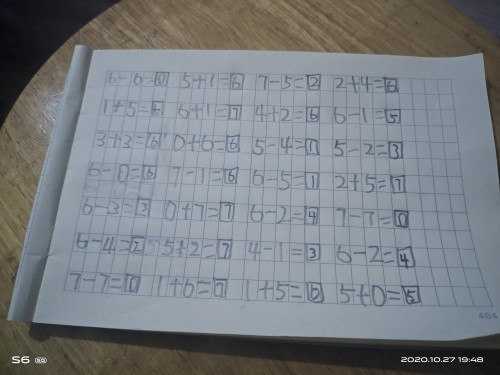 6-6=0 5+1=6 7-5=2 2+4=6
1+5=6 6+1=7 4+2=6 6-1=5
3+3=6 0+6=6 5-4=1 5-2=3
6-0=6 7-1=6 6-5=1 2+5=7
6-3=3 0+7=7 6-2=4 7-7=0
6-4=2 5+2=7 4-1=3 6-2=4
7-7=0 1+6=7 1+5=6 5+0=5
404
S6 5G
2020.10.27 19:48